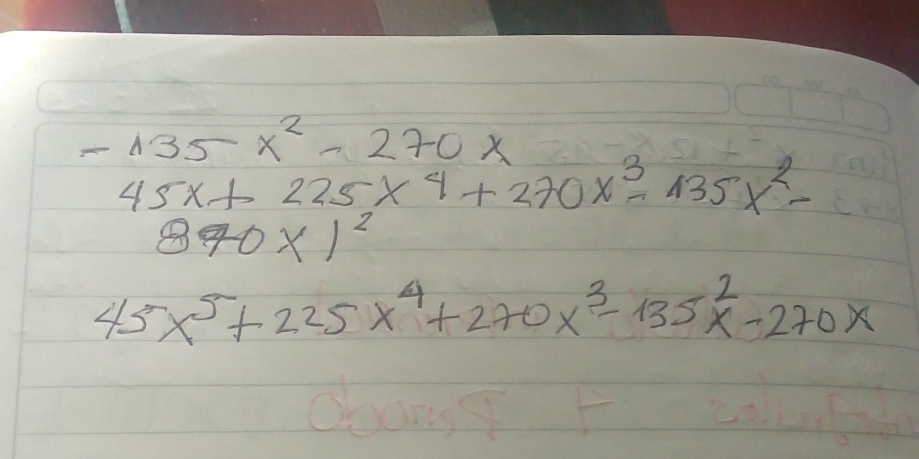 -135x² - 270x
45x + 225x⁴ + 270x³ - 135x² -
870x)²
45x⁵ + 225x⁴ + 270x³ - 135x² - 270x